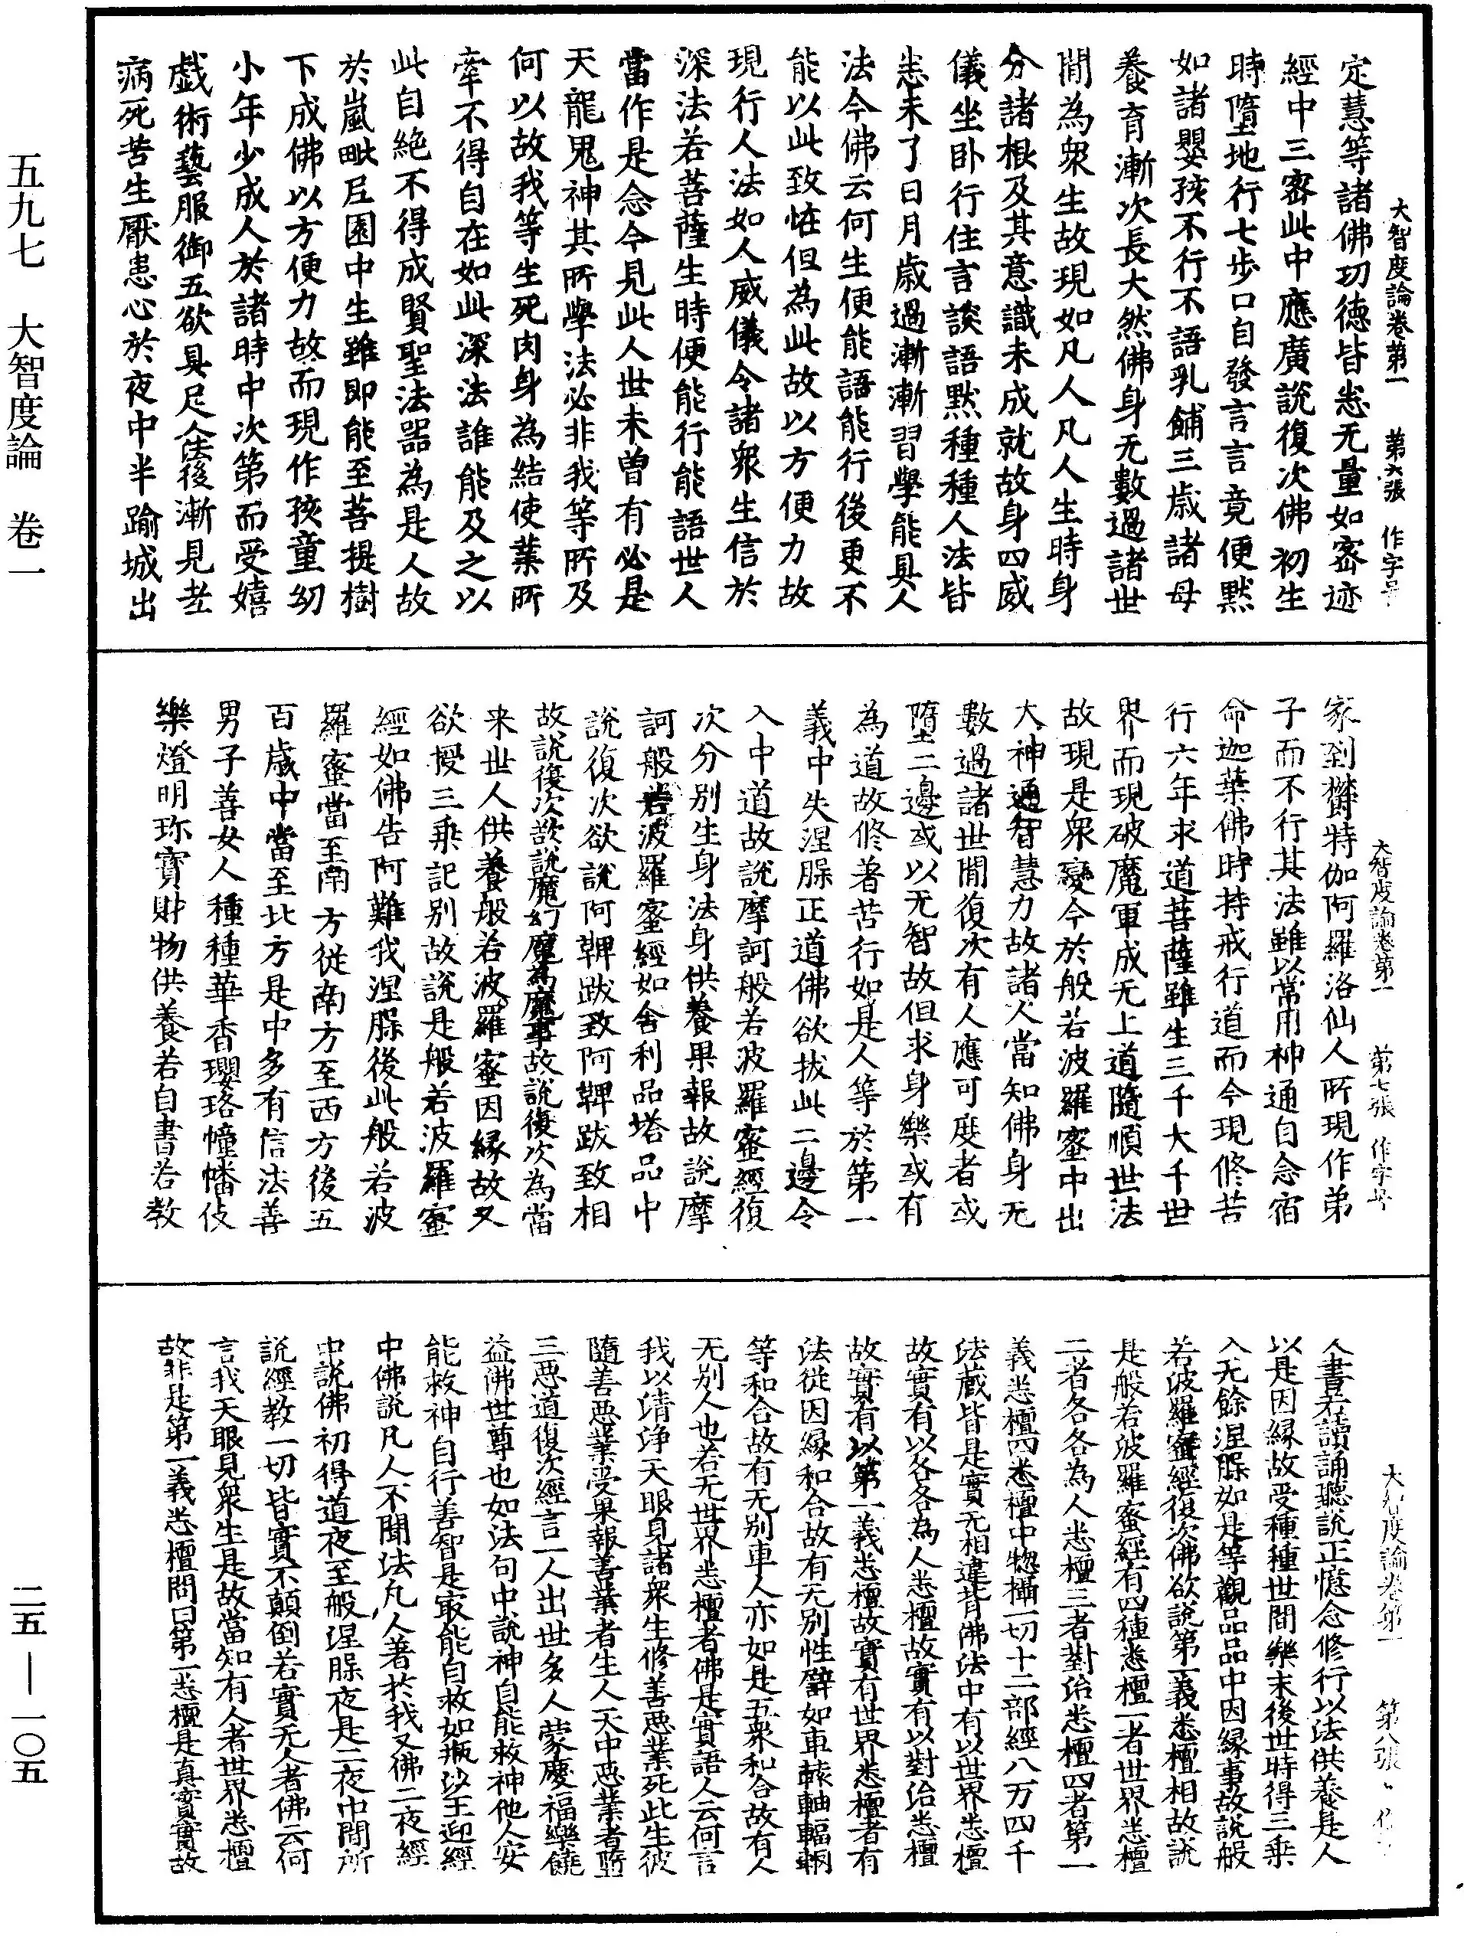 大智度論卷第一　第六張　作字号
定慧等諸佛功德皆悉无量如密迹
經中三密此中應廣說復次佛初生
時墮地行七步口自發言言竟便默
如諸嬰孩不行不語乳餔三歲諸母
養育漸次長大然佛身无數過諸世
閒為衆生故現如凡人凡人生時身
分諸根及其意識未成就故身四威
儀坐臥行住言談語默種種人法皆
悉未了日月歲過漸漸習學能具人
法今佛云何生便能語能行後更不
能以此致恠但為此故以方便力故
現行人法如人威儀令諸衆生信於
深法若菩薩生時便能行能語世人
當作是念今見此人世未曽有必是
天龍鬼神其所學法必非我等所及
何以故我等生死肉身為結使業所
牽不得自在如此深法誰能及之以
此自絕不得成賢聖法器為是人故
於嵐毗尼園中生雖即能至菩提樹
下成佛以方便力故而現作孩童幼
小年少成人於諸時中次第而受嬉
戲術藝服御五欲具足人法後漸見老
病死苦生厭患心於夜中半踰城出
大智度論卷第一　第七張　作字号
家到欝特伽阿羅洛仙人所現作弟
子而不行其法雖以常用神通自念宿
命迦葉佛時持戒行道而今現修苦
行六年求道菩薩雖生三千大千世
界而現破魔軍成无上道隨順世法
故現是衆變今於般若波羅蜜中出
大神通智慧力故諸人當知佛身无
數過諸世閒復次有人應可度者或
墮二邊或以无智故但求身樂或有
為道故修著苦行如是人等於第一
義中失涅槃正道佛欲拔此二邊令
入中道故說摩訶般若波羅蜜經復
次分別生身法身供養果報故說摩
訶般若波羅蜜經如舍利品塔品中
說復次欲說阿鞞跋致阿鞞跋致相
故說復次欲說魔幻魔為魔事故說復次為當
来世人供養般若波羅蜜因緣故又
欲授三乘記別故說是般若波羅蜜
經如佛告阿難我涅槃後此般若波
羅蜜當至南方從南方至西方後五
百歲中當至北方是中多有信法善
男子善女人種種華香瓔珞幢幡伎
樂燈明珎寶財物供養若自書若教
大智度論卷第一　第八張　作
人書若讀誦聽說正憶念修行以法供養是人
以是因緣故受種種世間樂末後世時得三乘
入无餘涅槃如是等觀品品中因緣事故說般
若波羅蜜經復次佛欲說第一義悉檀相故說
是般若波羅蜜經有四種悉檀一者世界悉檀
二者各各為人悉檀三者對治悉檀四者第一
義悉檀四悉檀中惣攝一切十二部經八万四千
法藏皆是實无相違背佛法中有以世界悉檀
故實有以各各為人悉檀故實有以對治悉檀
故實有以第一義悉檀故實有世界悉檀者有
法從因緣和合故有无別性譬如車轅軸輻輞
等和合故有无別車人亦如是五衆和合故有人
无別人也若无世界悉檀者佛是實語人云何言
我以清淨天眼見諸衆生修善惡業死此生彼
隨善惡業受果報善業者生人天中惡業者墮
三惡道復次經言一人出世多人蒙慶福樂饒
益佛世尊也如法句中說神自能救神他人安
能救神自行善智是㝡能自救如瓶沙王迎經
中佛說凡人不聞法凡人著於我又佛二夜經
中說佛初得道夜至般涅槃夜是二夜中間所
說經教一切皆實不顛倒若實无人者佛云何
言我天眼見衆生是故當知有人者世界悉檀
故非是第一義悉檀問曰第一悉檀是真實實故
五九七　大智度論　卷一
二五—一〇五